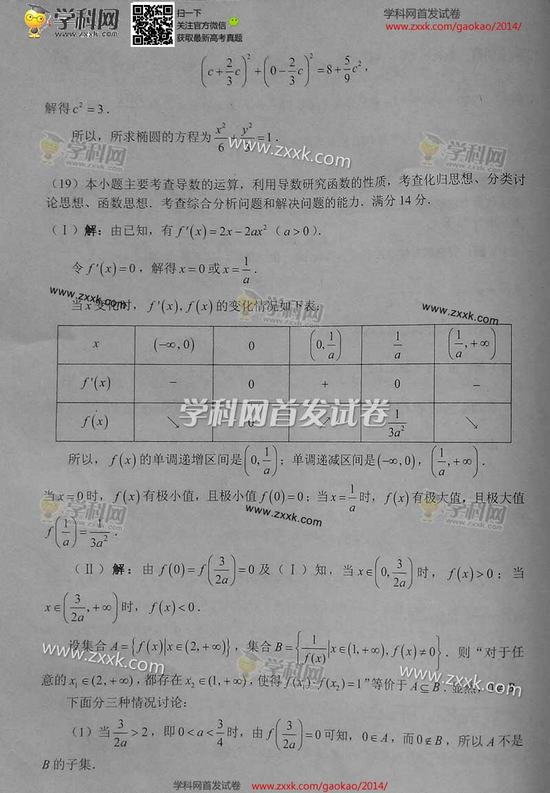 学科网
www.zxxk.com
扫一下
关注官方微信
获取最新高考真题
学科网首发试卷
www.zxxk.com/gaokao/2014/
(c+2/3c)²+(0-2/3c)²=8+5/9c²,
解得c²=3.
所以，所求椭圆的方程为x²/6+y²/3=1.
（19）本小题主要考查导数的运算，利用导数研究函数的性质，考查化归思想、分类讨
论思想、函数思想．考查综合分析问题和解决问题的能力．满分14分．
（Ⅰ）解：由已知，有f′(x)=2x-2ax²（a>0）.
令f′(x)=0，解得x=0或x=1/a.
当x变化时，f′(x),f(x)的变化情况如下表：
x (-∞,0) 0 (0,1/a) 1/a (1/a,+∞)
f′(x) - 0 + 0 -
f(x) ↘ 0 ↗ 1/3a² ↘
学科网首发试卷
所以，f(x)的单调递增区间是(0,1/a)；单调递减区间是(-∞,0)，(1/a,+∞).
当x=0时，f(x)有极小值，且极小值f(0)=0；当x=1/a时，f(x)有极大值，且极大值
f(1/a)=1/3a².
（Ⅱ）解：由f(0)=f(3/2a)=0及（Ⅰ）知，当x∈(0,3/2a)时，f(x)>0；当
x∈(3/2a,+∞)时，f(x)<0.
设集合A={f(x)|x∈(2,+∞)}，集合B={1/f(x)|x∈(1,+∞),f(x)≠0}．则“对于任
意的x₁∈(2,+∞)，都存在x₂∈(1,+∞)，使得f(x₁)·f(x₂)=1”等价于A⊆B．显然，0∉B.
下面分三种情况讨论：
（1）当3/2a>2，即0<a<3/4时，由f(3/2a)=0可知，0∈A，而0∉B，所以A不是
B的子集．
学科网首发试卷
www.zxxk.com/gaokao/2014/